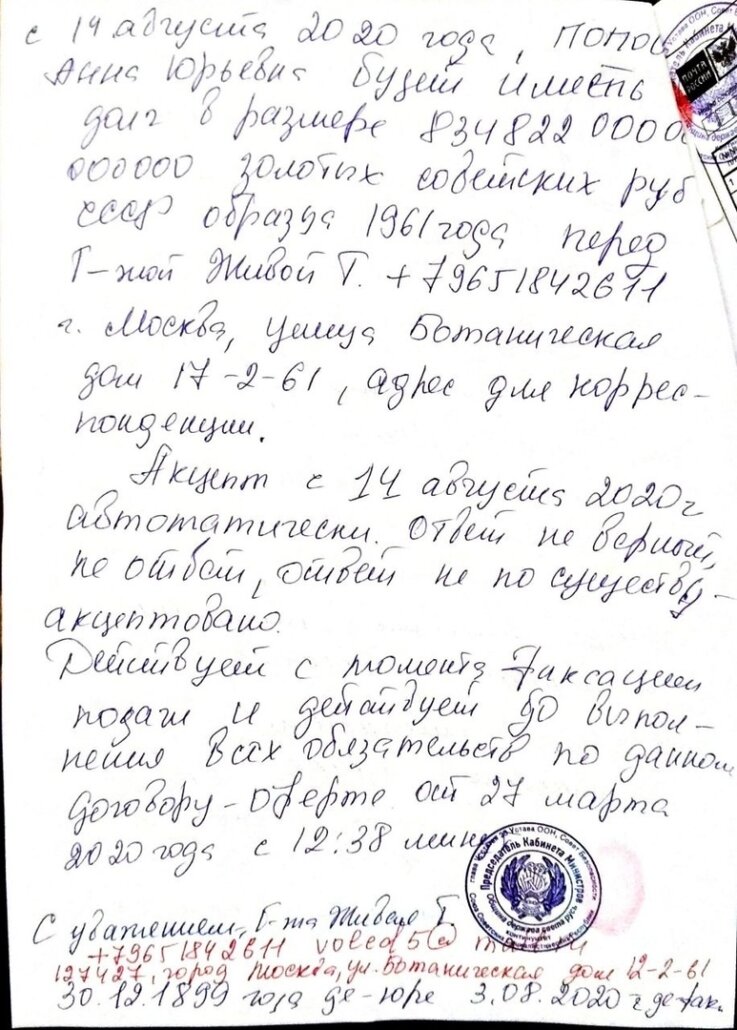 с 14 августа 2020 года,
Анна Юрьевна будет иметь
долг в размере 834822 0000
000000 золотых советских руб
СССР образца 1961 года перед
Г-жой Живой Т. +79651842611
г. Москва, улица Ботаническая
дом 17-2-61, адрес для коррес-
понденции.
Акцепт с 14 августа 2020 г
автоматически. Ответ не верный,
не ответ, ответ не по существу -
акцептовано.
Действует с момента факсации
подачи и действует до выпол-
нения всех обязательств по данном
договору-оферте от 27 марта
2020 года с 12:38 мин
С уважением, Г-жа Живая Т.
+79651842611
127427, город Москва, ул. Ботаническая дом 12-2-61
30.12.1899 года де-юре 3.08.2020 г де-фак.
ПОЧТА
РОССИИ
Председатель Кабинета Министров